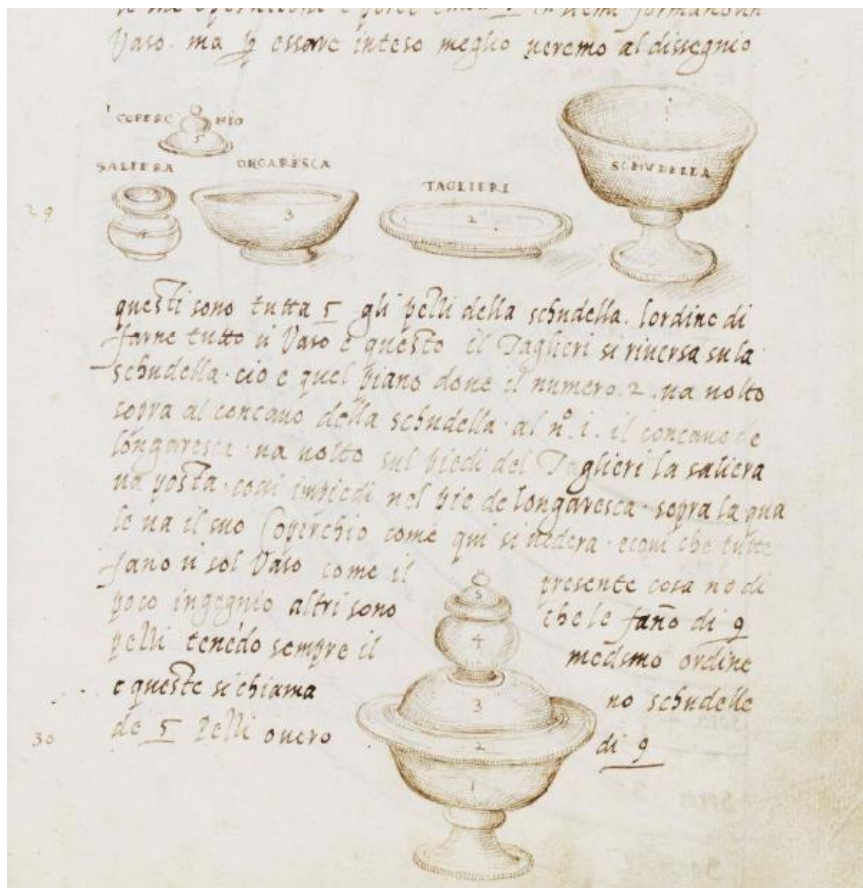 Vaso. ma p essere inteso meglio veremo al dissegnio
COPERC HIO
5
SALIERA
ONGARESCA
TAGLIERI
SCHUDELLA
1
29
4
3
2
questi sono tutta 5 gli pezzi della schudella. lordine di
farne tutto ũ Vaso e questo il Taglieri si riversa su la
schudella. cio e quel piano dove il numero. 2. va volto
sopra al concavo della schudella. al nº. i. il concavo de
longaresca. va volto sul piedi del Taglieri la saliera
va posta. cosi impiedi nel pie de longaresca. sopra la qua
le va il suo Coperchio come qui si vedera. ecosi che tutte
fano ũ sol Vaso come il presente cosa no di
poco ingegnio altri sono che le fano di 9
pezzi tenẽdo sempre il medsmo ordine
e queste si chiama no schudelle
30
de 5 Pezzi overo di 9
5
4
3
2
1